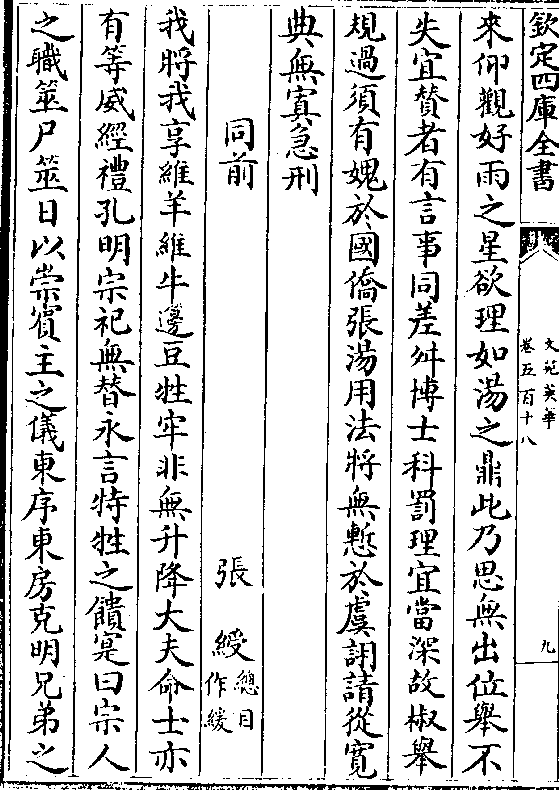 欽定四庫全書
文苑英華
卷五百十八
九
來仰觀好雨之星欲理如湯之鼎此乃思無出位舉不
失宜贊者有言事同差舛博士科罰理宜當深故椒舉
規過須有媿於國僑張湯用法將無慙於虞詡請從寛
典無寘急刑
同前
張綬總目作緩
我將我享維羊維牛籩豆牲牢非無升降大夫命士亦
有等威經禮孔明宗祀無替永言特牲之饋寔曰宗人
之職筮尸筮日以崇賓主之儀東序東房克明兄弟之